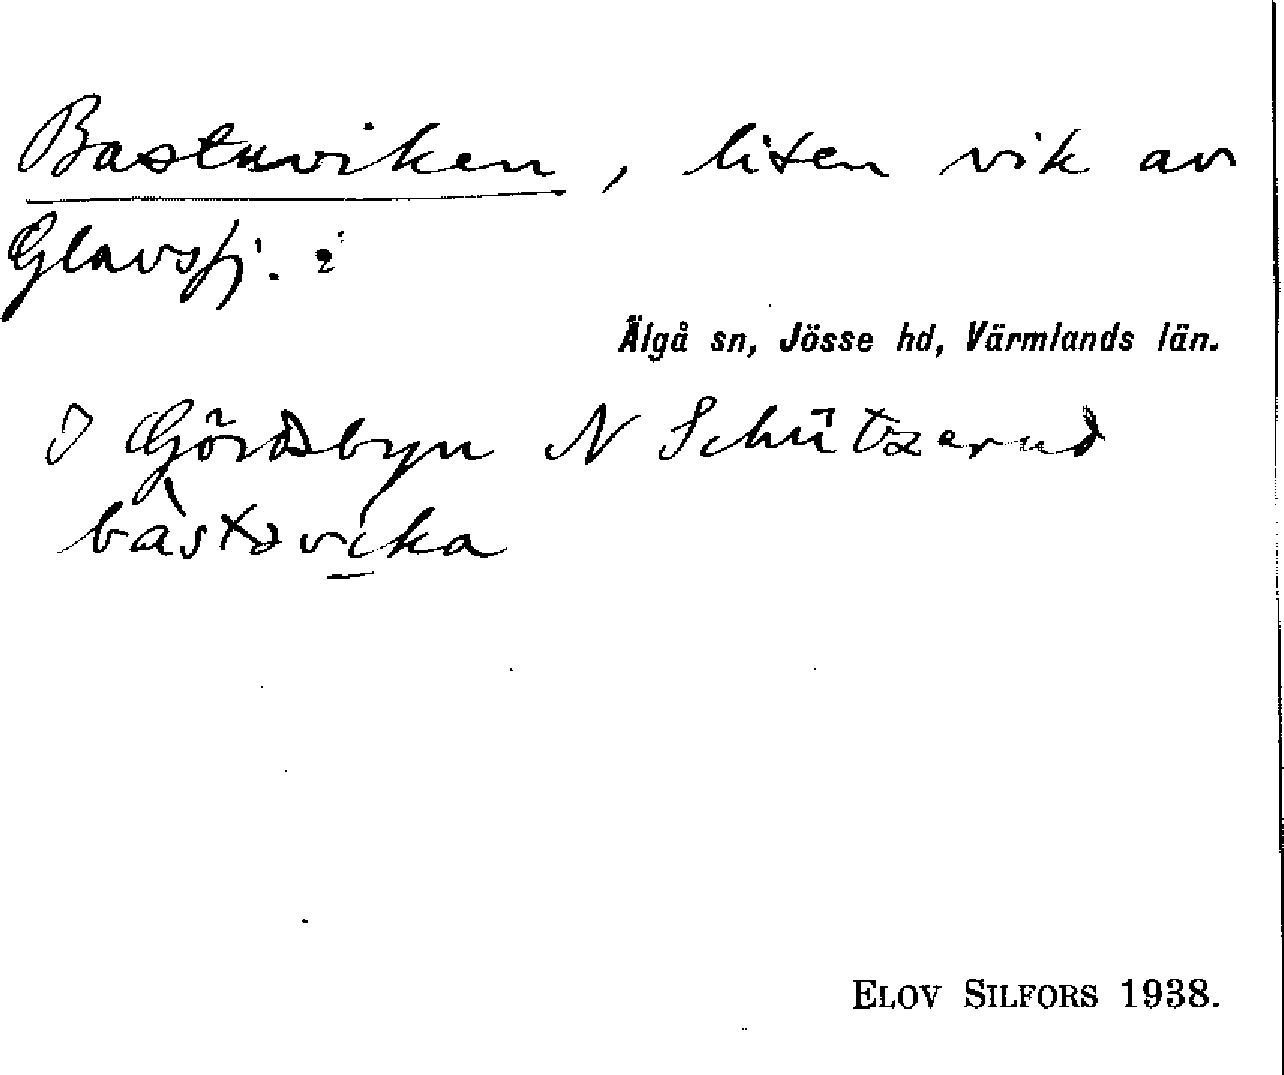 Bastuviken, liten vik av
Glavsfj. i
Älgå sn, Jösse hd, Värmlands län.
I Gördsbyn N Schützerud
bàstəvika
ELOV SILFORS 1938.